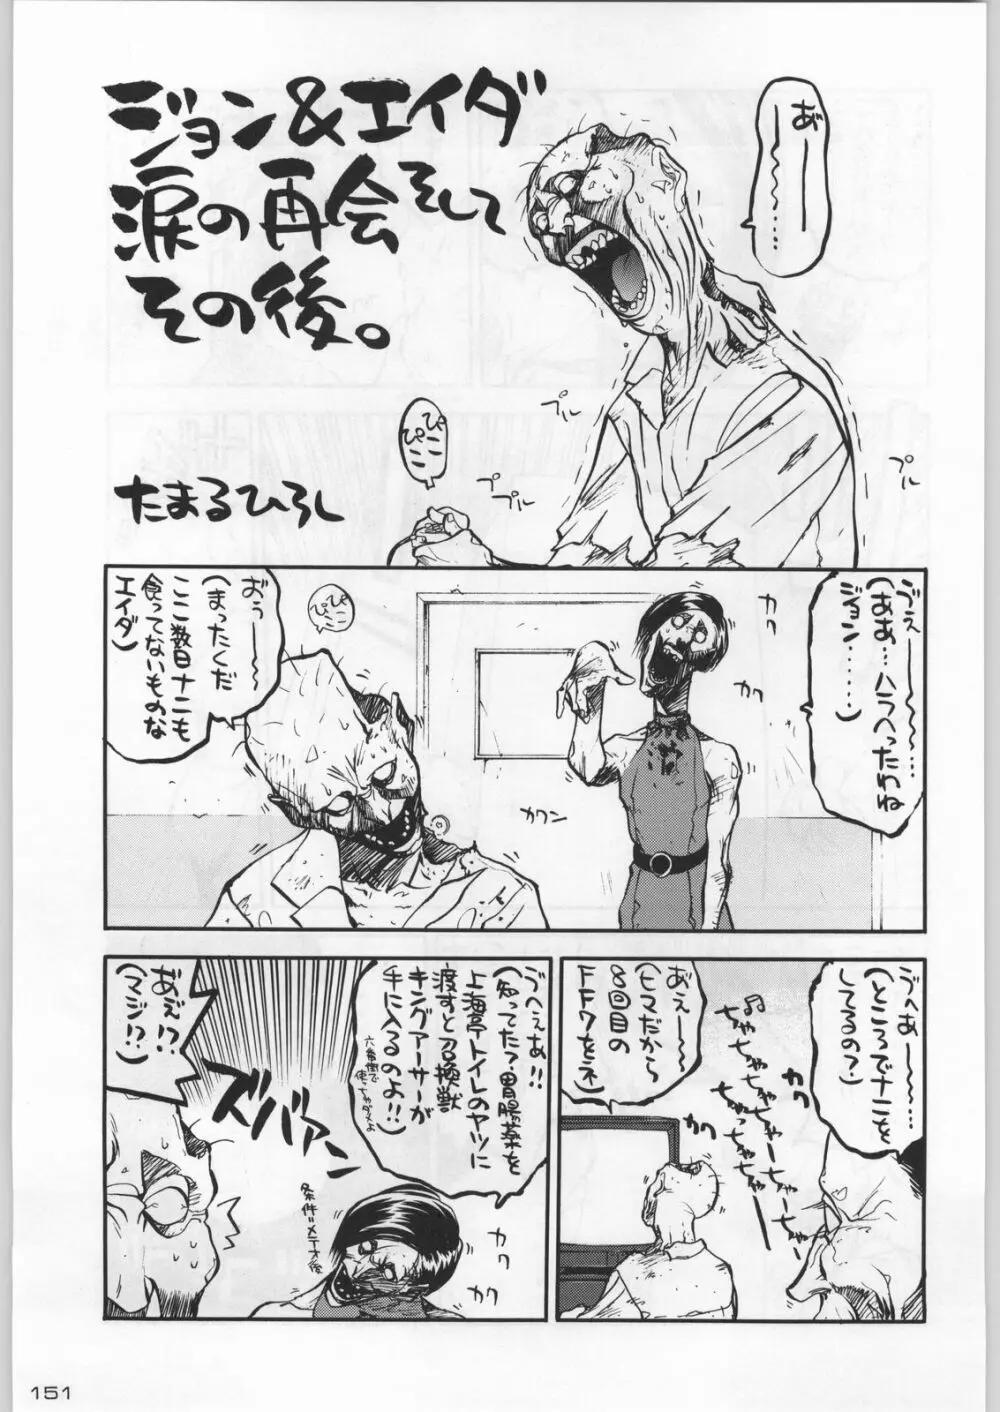 ジョン&エイダ
涙の再会そして
その後。
たまるひろし
あ゛ーーー〜〜……
プル
プル
プ
プル
プル
ぴこ
ぴこ
ゔぇーーー〜〜〜……
(ああ…ハラへったわね
ジョン……)
カク
カク
カクン
ぴこ
ぴこ
おぅ———〜〜
(まったくだ
ここ数日ナニも
食ってないものな
エイダ)
ゔへぁーー〜〜…
(ところでナニを
してるの?)
カク
カク
♫ちゃちゃちゃちゃーちゃーちゃー
ちゃっちゃちゃー
あ゛ぇーー〜〜
(ヒマだから
8回目の
FF7をネ)
ゔへぇぁ!!
(知ってた?胃腸薬を
上海亭トイレのヤツに
渡すと召喚獣
キングアーサーが
手に入るのよ!!)
六番街で
使っちゃダメよ
条件"メテオ後
カク
カク
ズバァーン
あ゛ぇ!?
(マジ!?)
151